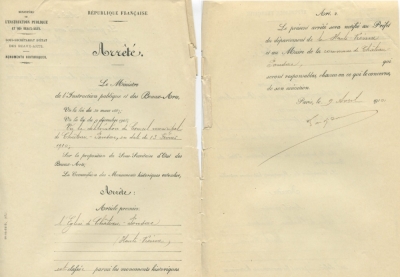 MINISTÈRE
DE
L'INSTRUCTION PUBLIQUE
ET DES BEAUX-ARTS.
SOUS-SECRÉTARIAT D'ÉTAT
DES BEAUX-ARTS.
MONUMENTS HISTORIQUES.
RÉPUBLIQUE FRANÇAISE.
Arrêté.
Le Ministre
de l'Instruction publique et des Beaux-Arts,
Vu la loi du 30 mars 1887,
Vu la loi du 9 décembre 1905,
Vu la délibération du Conseil municipal
de Château-Ponsac, en date du 13 février
Sur la proposition du Sous-Secrétaire d'État des
Beaux-Arts,
La Commission des Monuments historiques entendue,
Arrête:
Article premier.
L'Église de Château-Ponsac
(Haute Vienne)
est classée parmi les monuments historiques
Art. 2.
Le présent arrêté sera notifié au Préfet
du département de la Haute Vienne
et au Maire de la commune de Château
Ponsac, qui
seront responsables, chacun en ce qui le concerne,
de son exécution.
Paris, le 9 Avril